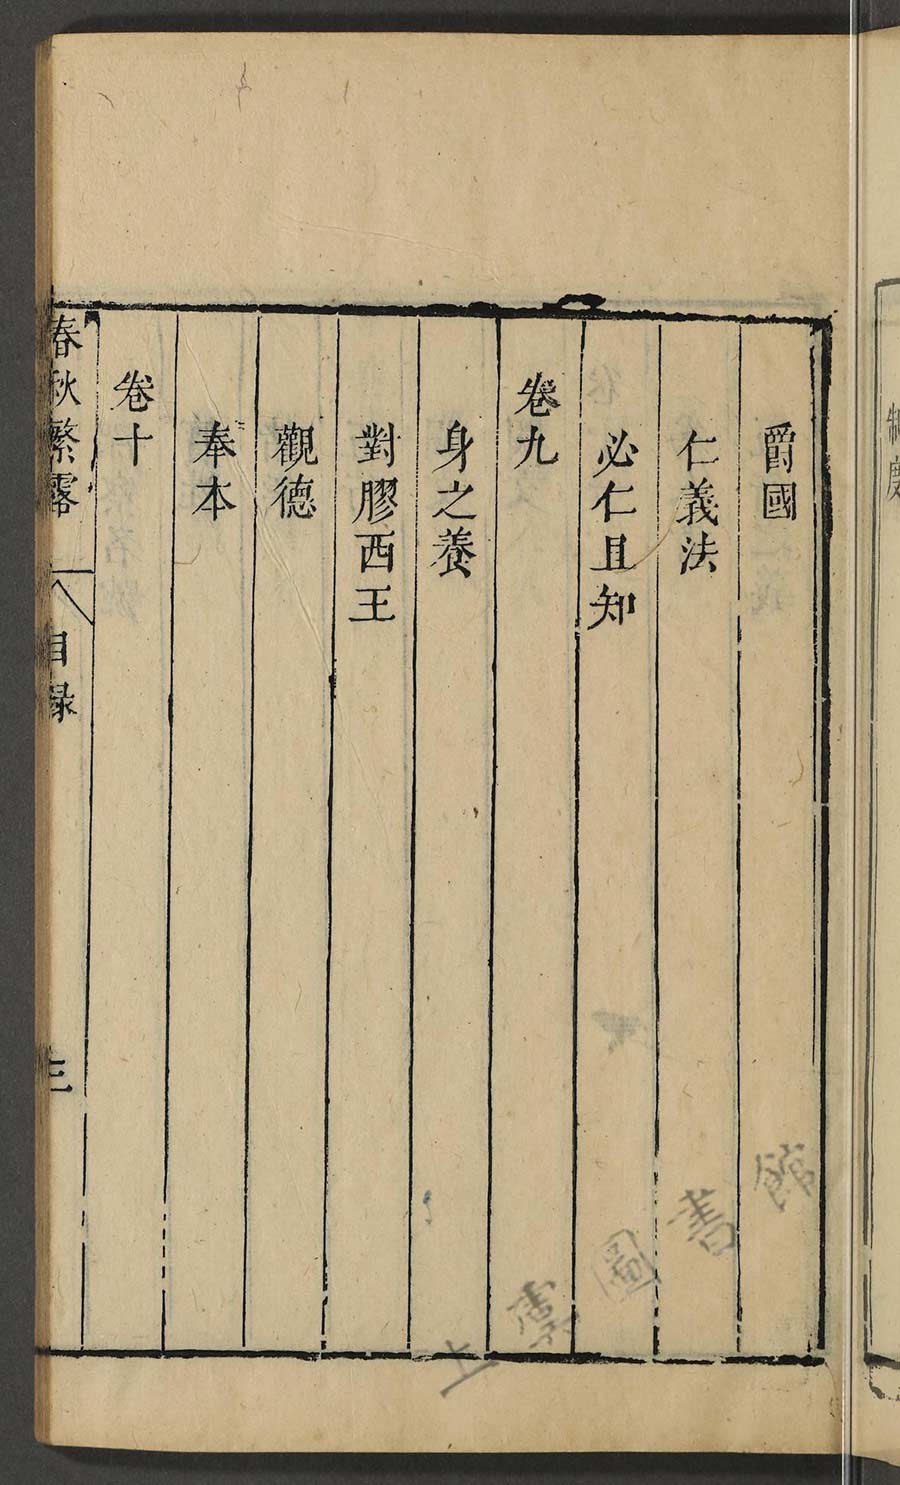 爵國
仁義法
必仁且知
卷九
身之養
對膠西王
觀德
奉本
卷十
春秋繁露
目錄
三
上虞圖書館
制度